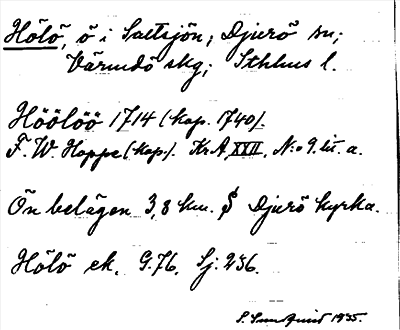 Hölö, ö i Saltsjön; Djurö sn;
Värmdö skg; Sthlms l.
Höölöö 1714 (kop. 1740).
F. W. Hoppe (kop.). KrA, XXII, N:o 9. lit. a.
Ön belägen 3,8 km. S Djurö kyrka.
Hölö ek. G. 76, Sj. 236.
1935.